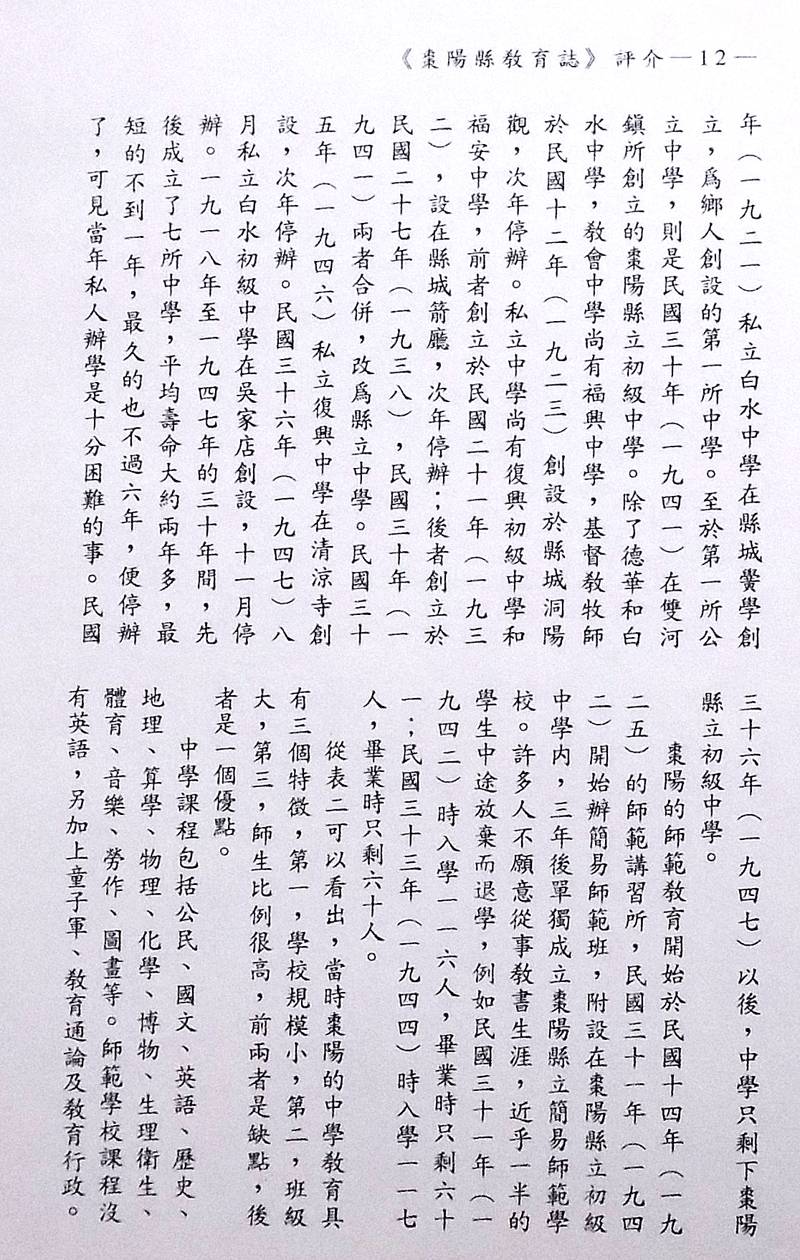 《棗陽縣教育誌》評介—12—
年（一九二一）私立白水中學在縣城黌學創
立，爲鄉人創設的第一所中學。至於第一所公
立中學，則是民國三十年（一九四一）在雙河
鎮所創立的棗陽縣立初級中學。除了德華和白
水中學，教會中學尚有福興中學，基督教牧師
於民國十二年（一九二三）創設於縣城洞陽
觀，次年停辦。私立中學尚有復興初級中學和
福安中學，前者創立於民國二十一年（一九三
二），設在縣城箭廳，次年停辦；後者創立於
民國二十七年（一九三八），民國三十年（一
九四一）兩者合併，改爲縣立中學。民國三十
五年（一九四六）私立復興中學在清凉寺創
設，次年停辦。民國三十六年（一九四七）八
月私立白水初級中學在吳家店創設，十一月停
辦。一九一八年至一九四七年的三十年間，先
後成立了七所中學，平均壽命大約兩年多，最
短的不到一年，最久的也不過六年，便停辦
了，可見當年私人辦學是十分困難的事。民國
三十六年（一九四七）以後，中學只剩下棗陽
縣立初級中學。
棗陽的師範教育開始於民國十四年（一九
二五）的師範講習所，民國三十一年（一九四
二）開始辦簡易師範班，附設在棗陽縣立初級
中學內，三年後單獨成立棗陽縣立簡易師範學
校。許多人不願意從事教書生涯，近乎一半的
學生中途放棄而退學，例如民國三十一年（一
九四二）時入學一一六人，畢業時只剩六十
一；民國三十三年（一九四四）時入學一一七
人，畢業時只剩六十人。
從表二可以看出，當時棗陽的中學教育具
有三個特徵，第一，學校規模小，第二，班級
大，第三，師生比例很高，前兩者是缺點，後
者是一個優點。
中學課程包括公民、國文、英語、歷史、
地理、算學、物理、化學、博物、生理衛生、
體育、音樂、勞作、圖畫等。師範學校課程沒
有英語，另加上童子軍、教育通論及教育行政。